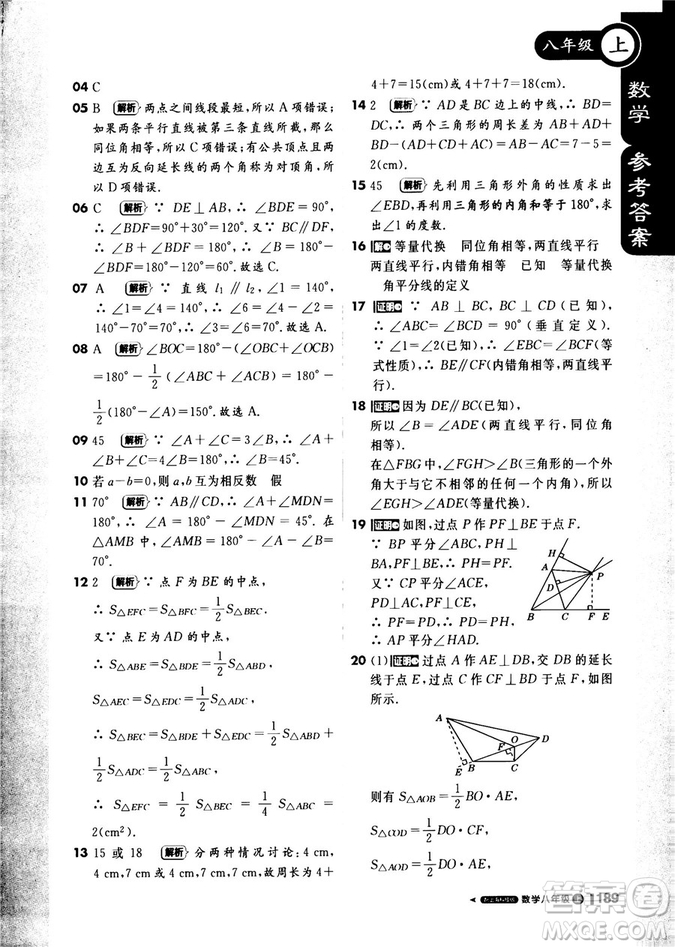 八年级 上
数学 参考答案
04 C
05 B 解析 两点之间线段最短,所以 A 项错误;
如果两条平行直线被第三条直线所截,那么
同位角相等,所以 C 项错误;有公共顶点且两
边互为反向延长线的两个角称为对顶角,所
以 D 项错误.
06 C 解析 ∵ DE⊥AB, ∴ ∠BDE=90°,
∴ ∠BDF=90°+30°=120°. 又∵ BC∥DF,
∴ ∠B+∠BDF=180°, ∴ ∠B=180°-
∠BDF=180°-120°=60°. 故选 C.
07 A 解析 ∵ 直线 l₁∥l₂,∠1=140°,
∴ ∠1=∠4=140°, ∴ ∠3=∠2=70°,
∴ ∠6=180°-70°-70°=40°. ∵ ∠4=∠3+
∠6, ∴ ∠3=∠4-∠6=100°. 故选 A.
08 A 解析 ∠BOC=180°-(∠OBC+∠OCB)
=180°-1/2(∠ABC+∠ACB)=180°-
1/2(180°-∠A). 故选 A.
09 45 解析 ∵ ∠A+∠C=3∠B, ∠A+
∠B+∠C=180°, ∴ ∠B=45°.
10 若 a-b=0,则 a,b 互为相反数 假
11 70° 解析 ∵ AB∥CD, ∴ ∠A+∠MDN=
180°, ∴ ∠A=180°-∠MDN=45°. 在
△AMB 中,∠AMB=180°-∠A-∠B=
70°.
12 2 解析 ∵ 点 F 为 BE 的中点,
∴ S△EFC=S△BFC=1/2S△BEC.
又∵ 点 E 为 AD 的中点,
∴ S△AEB=S△EDB=1/2S△ABD,
S△AEC=S△EDC=1/2S△ADC,
∴ S△BEC=S△BDE+S△EDC=1/2S△ABD+
1/2S△ADC=1/2S△ABC,
∴ S△EFC=1/2S△BEC=1/4S△ABC=
2(cm²).
13 15 或 18 解析 分两种情况讨论:4 cm,
4 cm,7 cm 或 4 cm,7 cm,7 cm,故周长为 4+
4+7=15(cm)或 4+7+7=18(cm).
14 2 解析 ∵ AD 是 BC 边上的中线, ∴ BD=
DC, ∴ 两个三角形的周长差为 AB-AC=7-5=
2(cm).
15 45 解析 先利用三角形外角的性质求出
∠EBD,再利用三角形的内角和等于180°,求
出∠1 的度数.
16 解 等量代换 同位角相等,两直线平行
两直线平行,内错角相等 已知 等量代换
角平分线的定义
17 证明 ∵ AB⊥BC, BC⊥CD(已知),
∴ ∠ABC=∠BCD=90°(垂直定义).
∵ ∠1=∠2(已知), ∴ ∠EBC=∠BCF(等
式性质), ∴ BE∥CF(内错角相等,两直线平
行).
18 证明 因为 DE∥BC(已知),
所以∠B=∠ADE(两直线平行,同位角
相等).
在△FBG 中,∠FGH>∠B(三角形的一个外
角大于与它不相邻的任何一个内角),所以
∠EGH>∠ADE(等量代换).
19 证明 如图,过点 P 作 PF⊥BE 于点 F.
∵ BP 平分∠ABC, PH⊥
BA,PF⊥BE, ∴ PH=PF.
又∵ PH=PD,
∴ PF=PD, ∴ PH=PD,
∴ AP 平分∠HAD.
H A D P B C F E
20 (1) 证明 过点 A 作 AE⊥DB,交 DB 的延长
线于点 E,过点 C 作 CF⊥BD 于点 F,如图
所示.
A O D F E B C
则有 S△AOB=1/2BO·AE,
S△COD=1/2DO·CF,
S△AOD=1/2DO·AE,
数学八年级 上 1189
答案圈